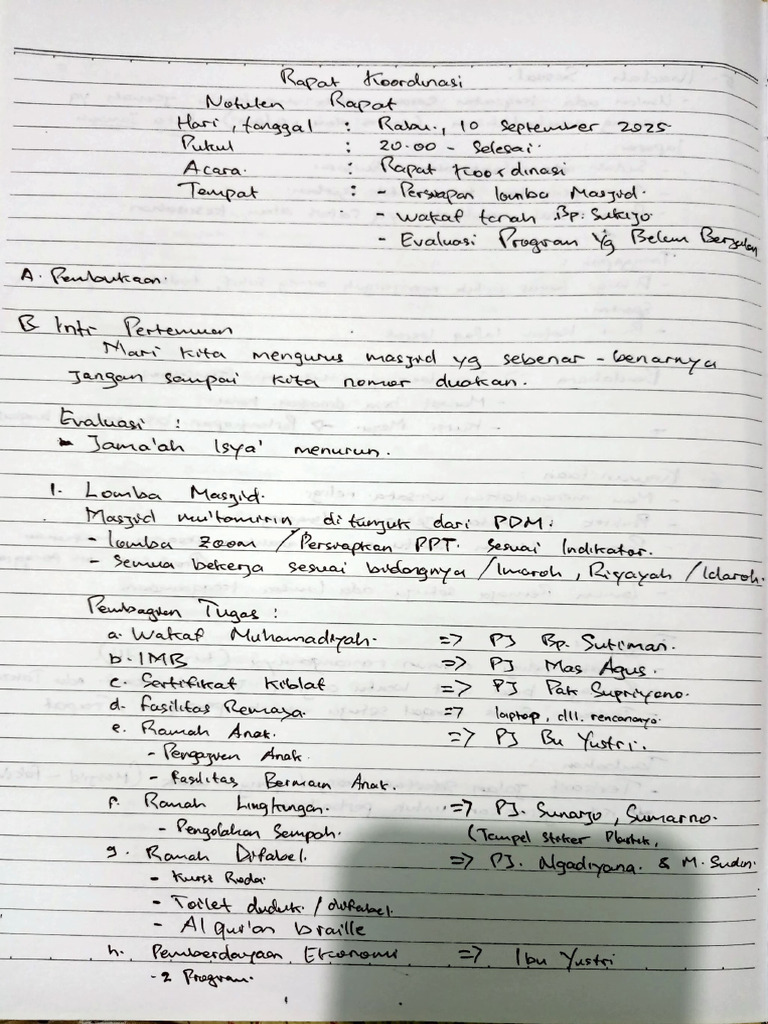 Rapat Koordinasi
Notulen Rapat
Hari, tanggal : Rabu, 10 September 2025
Pukul : 20.00 - Selesai
Acara : Rapat Koordinasi
Tempat : - Persiapan lomba Masjid.
- Wakaf tanah Bp. Sukijo
- Evaluasi Program Yg Belum Berjalan
A. Pembukaan.
B Inti Pertemuan
Mari kita mengurus masjid yg sebenar-benarnya
Jangan sampai kita nomer duakan.
Evaluasi :
- Jama'ah Isya' menurun.
1. Lomba Masjid.
Masjid muttamirin ditunjuk dari PDM.
- Lomba zoom / Persiapkan PPT. sesuai Indikator.
- Semua bekerja sesuai bidangnya / Imaroh, Riyayah / Idaroh.
Pembagian Tugas :
a. Wakaf Muhamadiyah. => PJ Bp. Sutiman.
b. IMB => PJ Mas Agus.
c. Sertifikat Kiblat => PJ Pak Supriyono.
d. Fasilitas Remaja. => laptop, dll. rencananya.
e. Ramah Anak. => PJ Bu Yustri.
- Pengajian Anak.
- Fasilitas Bermain Anak.
f. Ramah Lingkungan. => PJ. Sunarjo, Sumarno.
- Pengolahan Sampah. (Tempel Stiker Plastik,
g. Ramah Difabel. => PJ. Ngadiyana & M. Sudin.
- Kursi Roda
- Toilet duduk / difabel.
- Al Qur'an braille
h. Pemberdayaan Ekonomi => Ibu Yustri
- 2 Program.